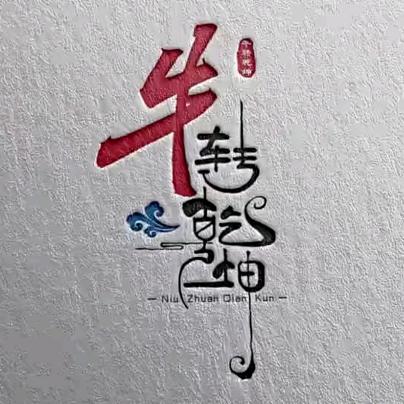 牛转乾坤
牛转乾坤
Niu Zhuan Qian Kun